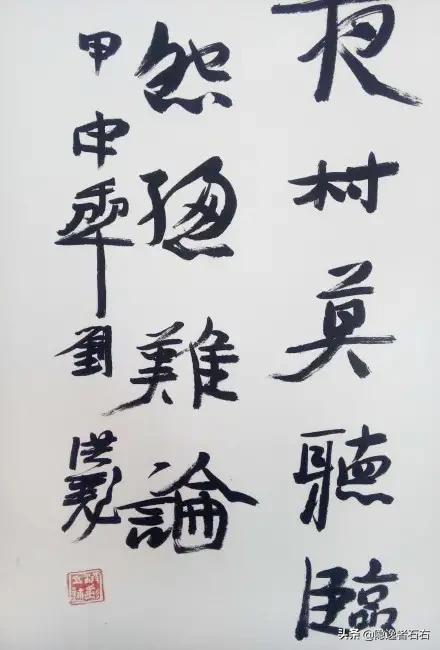 夜村莫聽臨
怨總難論
甲申年劉洪彪
头条 @隐逸者石右